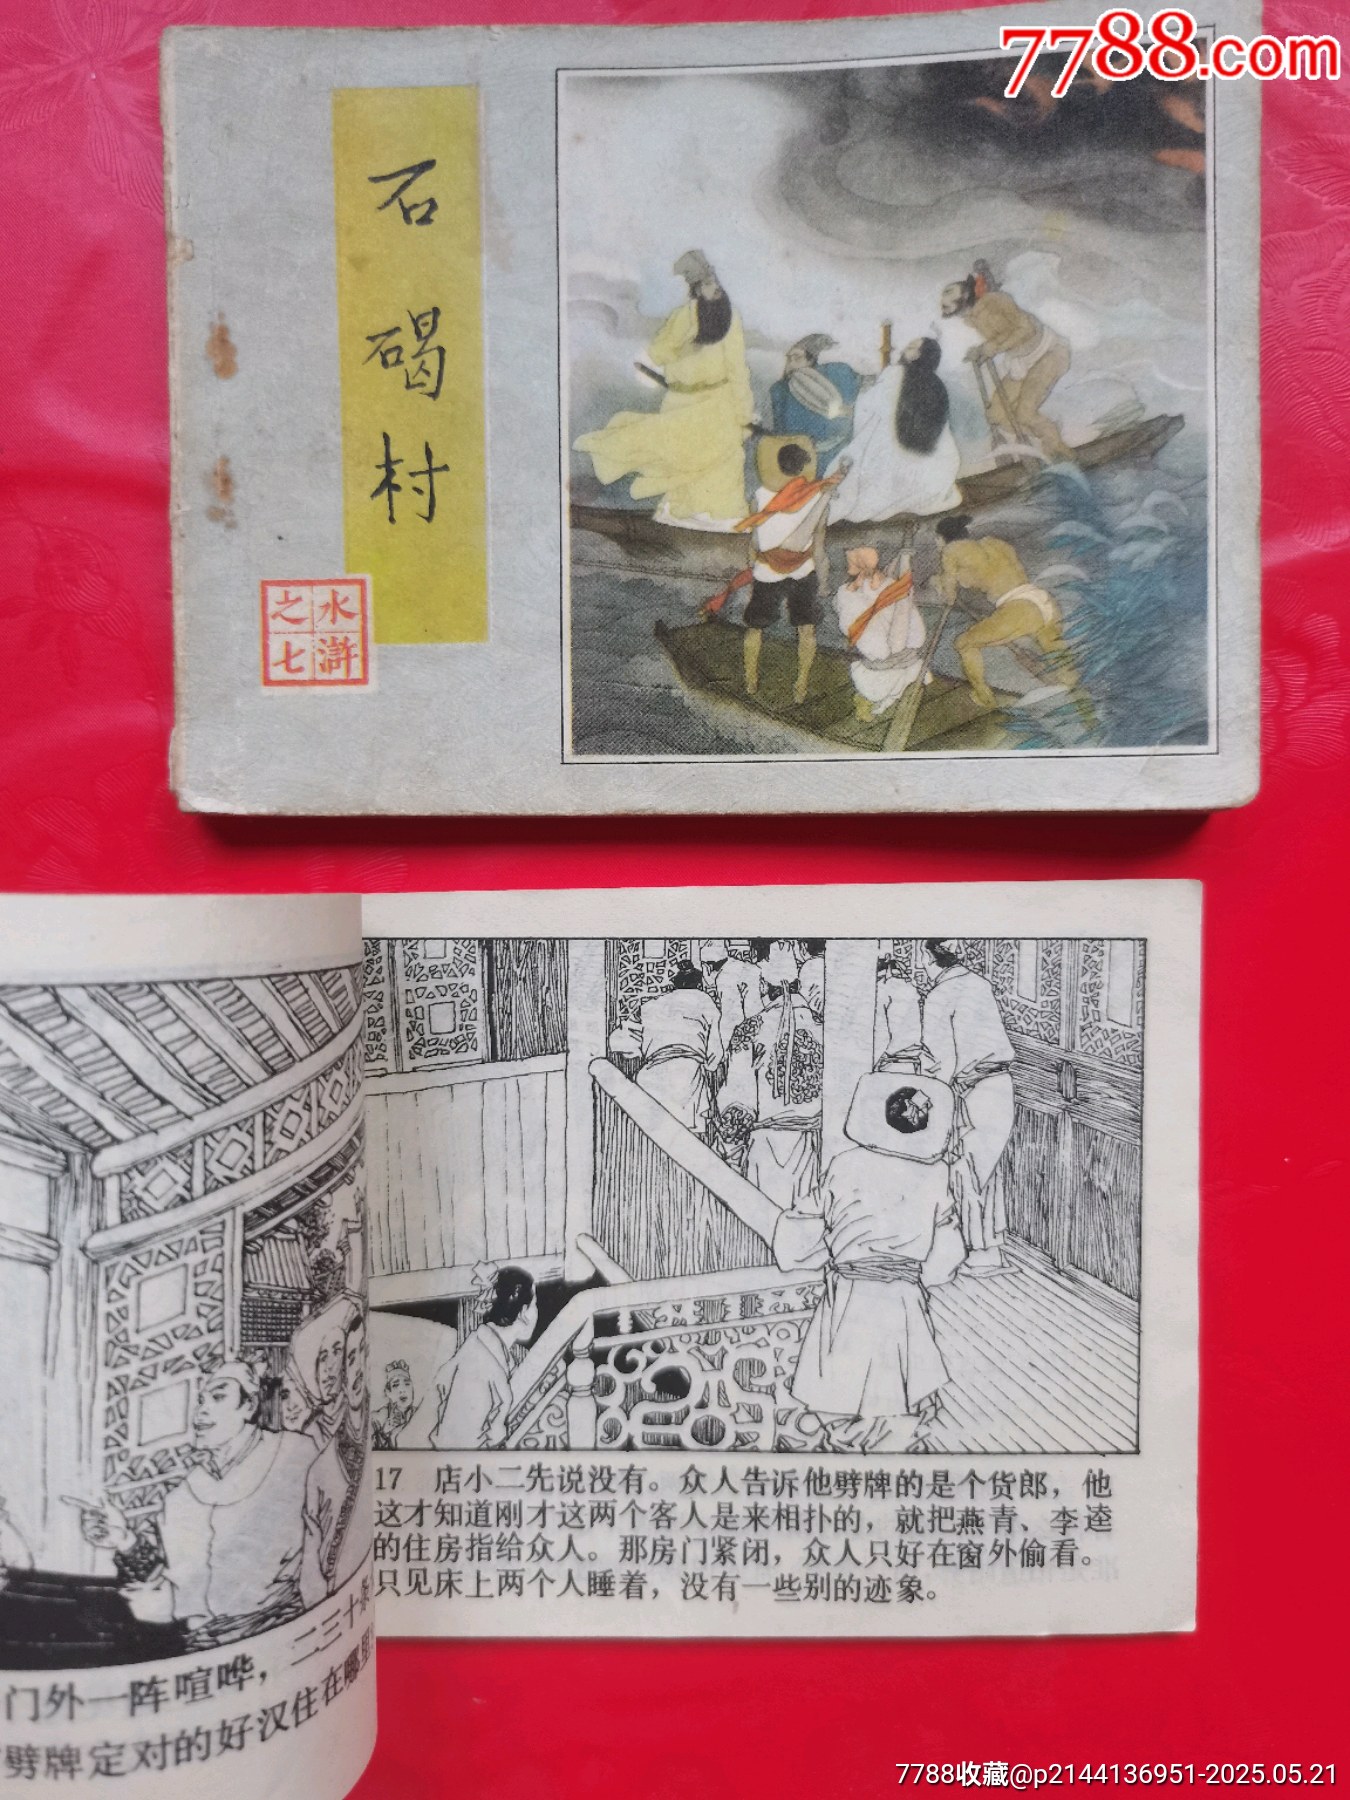 7788.com
石碣村
水浒
之七
17 店小二先说没有。众人告诉他劈牌的是个货郎，他
这才知道刚才这两个客人是来相扑的，就把燕青、李逵
的住房指给众人。那房门紧闭，众人只好在窗外偷看。
只见床上两个人睡着，没有一些别的迹象。
门外一阵喧哗，二三十条
劈牌定对的好汉住在哪里
7788收藏@p2144136951-2025.05.21